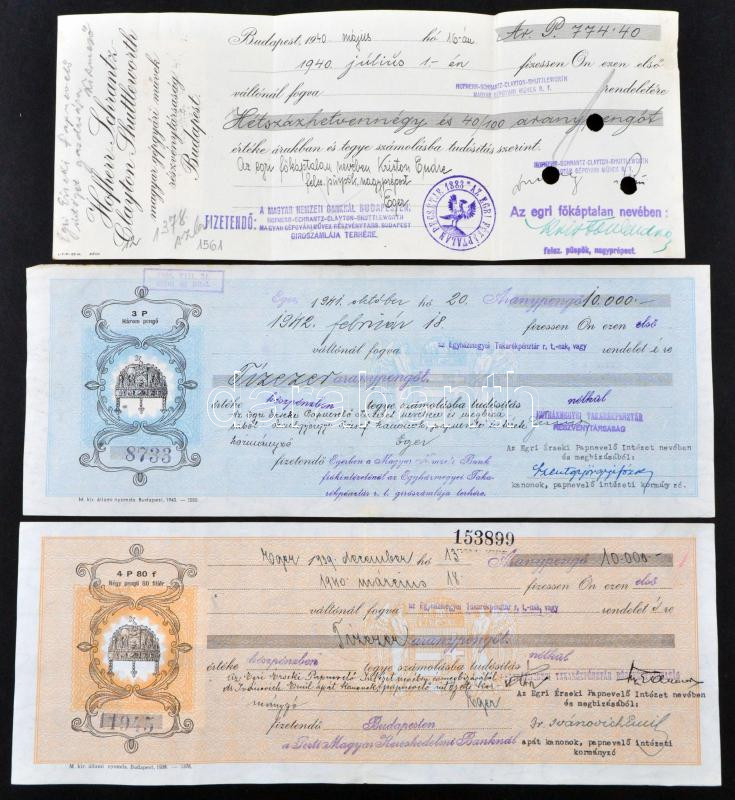 Budapest, 1940 május hó 16-án Ar. P. 774·40
1940 július 1-én fizessen Ön ezen első
váltónál fogva HOFHERR-SCHRANTZ-CLAYTON-SHUTTLEWORTH rendeletére
MAGYAR GÉPGYÁRI MŰVEK R. T.
Hétszázhetvennégy és 40/100 aranypengőt
értéke árukban és tegye számolásba tudósítás szerint.
Az egri főkáptalan nevében Kriston Endre
felsz. püspök, nagyprépost
Eger
FIZETENDŐ:
A MAGYAR NEMZETI BANKNÁL BUDAPESTEN,
HOFHERR-SCHRANTZ-CLAYTON-SHUTTLEWORTH
MAGYAR GÉPGYÁRI MŰVEK RÉSZVÉNYTÁRS. BUDAPEST
GIROSZÁMLÁJA TERHÉRE.
HOFHERR-SCHRANTZ-CLAYTON-SHUTTLEWORTH
MAGYAR GÉPGYÁRI MŰVEK R. T.
Az egri főkáptalan nevében :
felsz. püspök, nagyprépost.
Hofherr-Schrantz
Clayton-Shuttleworth
magyar gépgyári művek
részvénytársaság
Budapest.
1378
1561
3 P
Három pengő
8733
Eger, 1941. október hó 20. Aranypengő 10.000.—
1942. február 18. fizessen Ön ezen első
váltónál fogva az Egyházmegyei Takarékpénztár r. t.-nak, vagy rendeletére
Tízezer aranypengőt.
értéke készpénzben tegye számolásba tudósítás nélkül
az Egri Érseki Papnevelő Intézet nevében és megbízá-
kormányzó Eger
EGYHÁZMEGYEI TAKARÉKPÉNZTÁR
RÉSZVÉNYTÁRSASÁG
fizetendő Egerben a Magyar Nemzeti Bank
fiókintézeténél az Egyházmegyei Taka-
rékpénztár r. t. girószámlája terhére.
Az Egri Érseki Papnevelő Intézet nevében
és megbízásából:
kanonok, papnevelő intézeti kormányzó.
M. kir. állami nyomda. Budapest, 1940.
darabanth
153899
4 P 80 f
Négy pengő 80 fillér
1945
Eger 1939. december hó 13 Aranypengő 10.000.—
1940. március 18. fizessen Ön ezen első
váltónál fogva az Egyházmegyei Takarékpénztár r. t.-nak, vagy rendeletére
Tízezer aranypengőt.
értéke készpénzben tegye számolásba tudósítás nélkül
az Egri Érseki Papnevelő Intézet nevében megbízásából
dr Ivánovich Emil apát kanonok, papnevelő intézeti kor-
mányzó Eger
fizetendő Budapesten
a Pesti Magyar Kereskedelmi Banknál
Az Egri Érseki Papnevelő Intézet nevében
és megbízásából:
Dr. Ivánovich Emil
apát kanonok, papnevelő intézeti
kormányzó
M. kir. állami nyomda. Budapest, 1938.